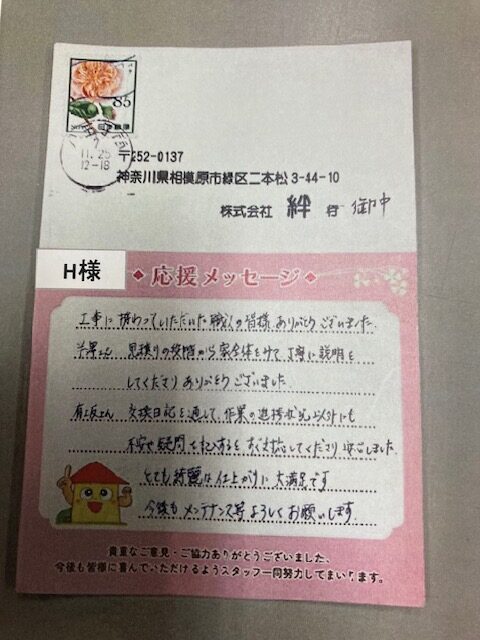 85
日本郵便
NIPPON
11.25
12-18
〒252-0137
神奈川県相模原市緑区二本松3-44-10
株式会社 絆 行 御中
H様
応援メッセージ
工事に携わっていただいた職人の皆様、ありがとうございました。
見積りの段階から家全体をみて、丁寧に説明を
してくださりありがとうございました。
有坂さん 交換日記を通して、作業の進捗状況以外にも
不安や疑問を記入するとすぐ対応してくださり安心しました。
とても綺麗な仕上がりに大満足です
今後もメンテナンス等よろしくお願いします。
貴重なご意見・ご協力ありがとうございました。
今後も皆様に喜んでいただけるようスタッフ一同努力してまいります。